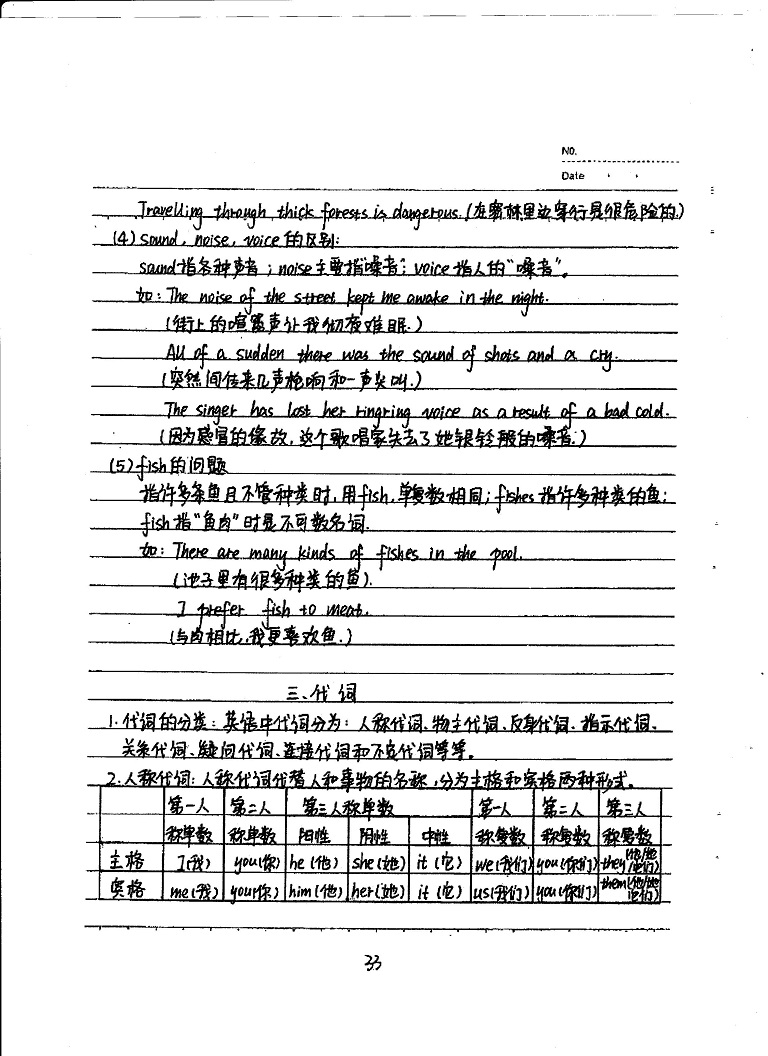 NO.
Date
Travelling through thick forests is dangerous.(在密林里边穿行是很危险的)
(4) sound, noise, voice的区别:
sound指各种声音;noise主要指噪音;voice指人的"嗓音"。
如:The noise of the street kept me awake in the night.
(街上的喧嚣声让我彻夜难眠.)
All of a sudden there was the sound of shots and a cry.
(突然间传来几声枪响和一声尖叫.)
The singer has lost her ringring voice as a result of a bad cold.
(因为感冒的缘故,这个歌唱家失去了她银铃般的嗓音.)
(5) fish的问题
指许多条鱼且不管种类时,用fish,单复数相同;fishes指许多种类的鱼;
fish指"鱼肉"时是不可数名词.
如:There are many kinds of fishes in the pool.
(池子里有很多种类的鱼).
I prefer fish to meat.
(与肉相比,我更喜欢鱼.)
三、代词
1.代词的分类:英语中代词分为:人称代词、物主代词、反身代词、指示代词、
关系代词、疑问代词、连接代词和不定代词等等。
2.人称代词:人称代词代替人和事物的名称,分为主格和宾格两种形式。
第一人 第二人 第三人称单数 第一人 第二人 第三人
称单数 称单数 阳性 阴性 中性 称复数 称复数 称复数
主格 I(我) you(你) he(他) she(她) it(它) we(我们) you(你们) they(他/她/它们)
宾格 me(我) you(你) him(他) her(她) it(它) us(我们) you(你们) them(他/她/它们)
33